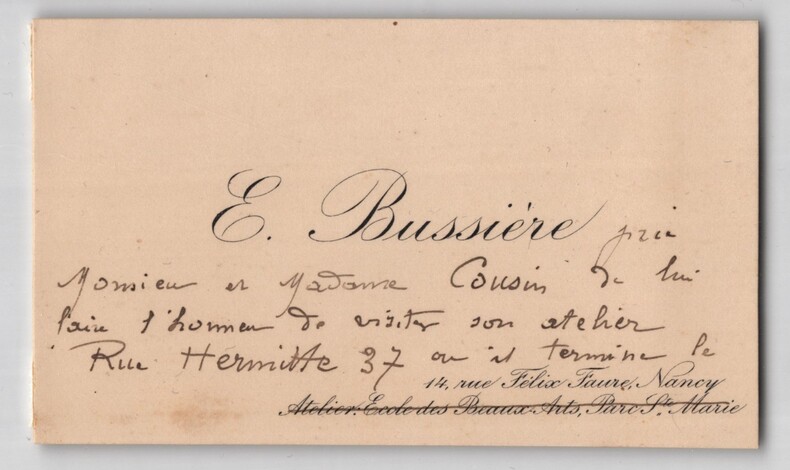 E. Bussière prie
Monsieur et Madame Cousin de lui
faire l'honneur de visiter son atelier
Rue Hermitte 37 ou il termine le
14, rue Félix Faure, Nancy
Atelier: Ecole des Beaux-Arts, Parc Ste Marie